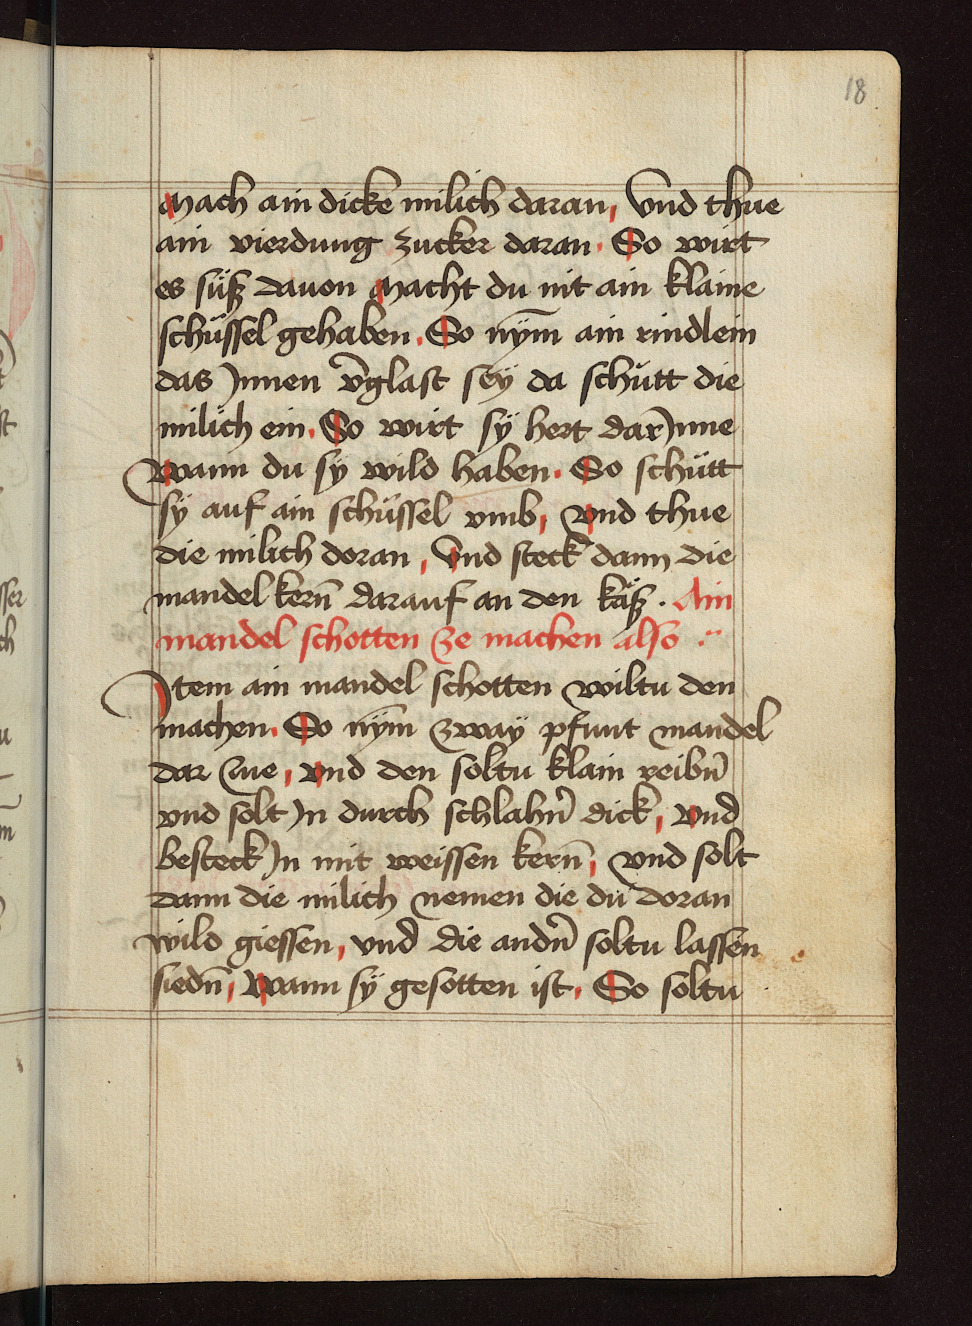 18
Mach ain dicke milich daran, Vnd thue
ain vierdung zucker daran. So wirt
es süß dauon Macht du nit ain klaine
schüssel gehaben. So nym̄ ain rindlein
das Jnnen v̄glast seÿ da schütt die
milich ein. So wirt sÿ hert dar Jnne
Wann du sÿ wild haben. So schütt
sÿ auf ain schüssel vmb, vnd thue
die milich doran, Vnd steck dann die
mandel kern̄ darauf an den käß. Ain
mandel schotten ze machen also :~
Jtem ain mandel schotten wiltu den
machen. So nym̄ zwaÿ pfunt mandel
dar zue, vnd den soltu klain reibn̄
vnd solt Jn durch schlahn̄ dick, vnd
besteck Jn mit weissen kern̄, vnd solt
dann die milich nemen die du doran
wild giessen, vnd die andn̄ soltu lassen
siedn̄, Wann sÿ gesotten ist. So soltu